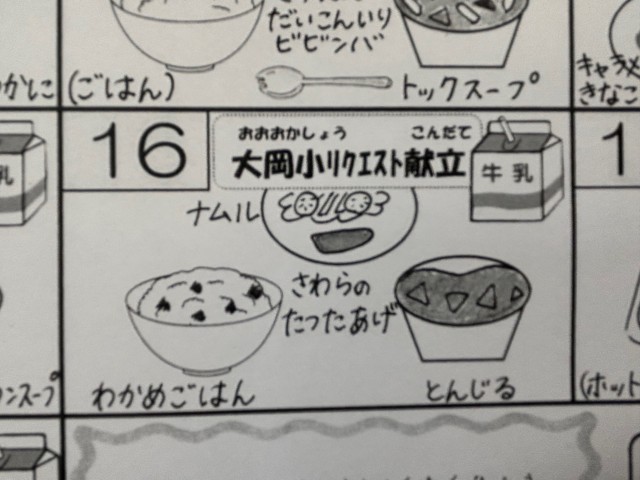 だいこんいり
ビビンバ
(ごはん)
トックスープ
きなこ
16
おおおかしょう こんだて
大岡小リクエスト献立
牛乳
乳
1
ナムル
さわらの
たったあげ
わかめごはん
とんじる
ンスープ
(ホット